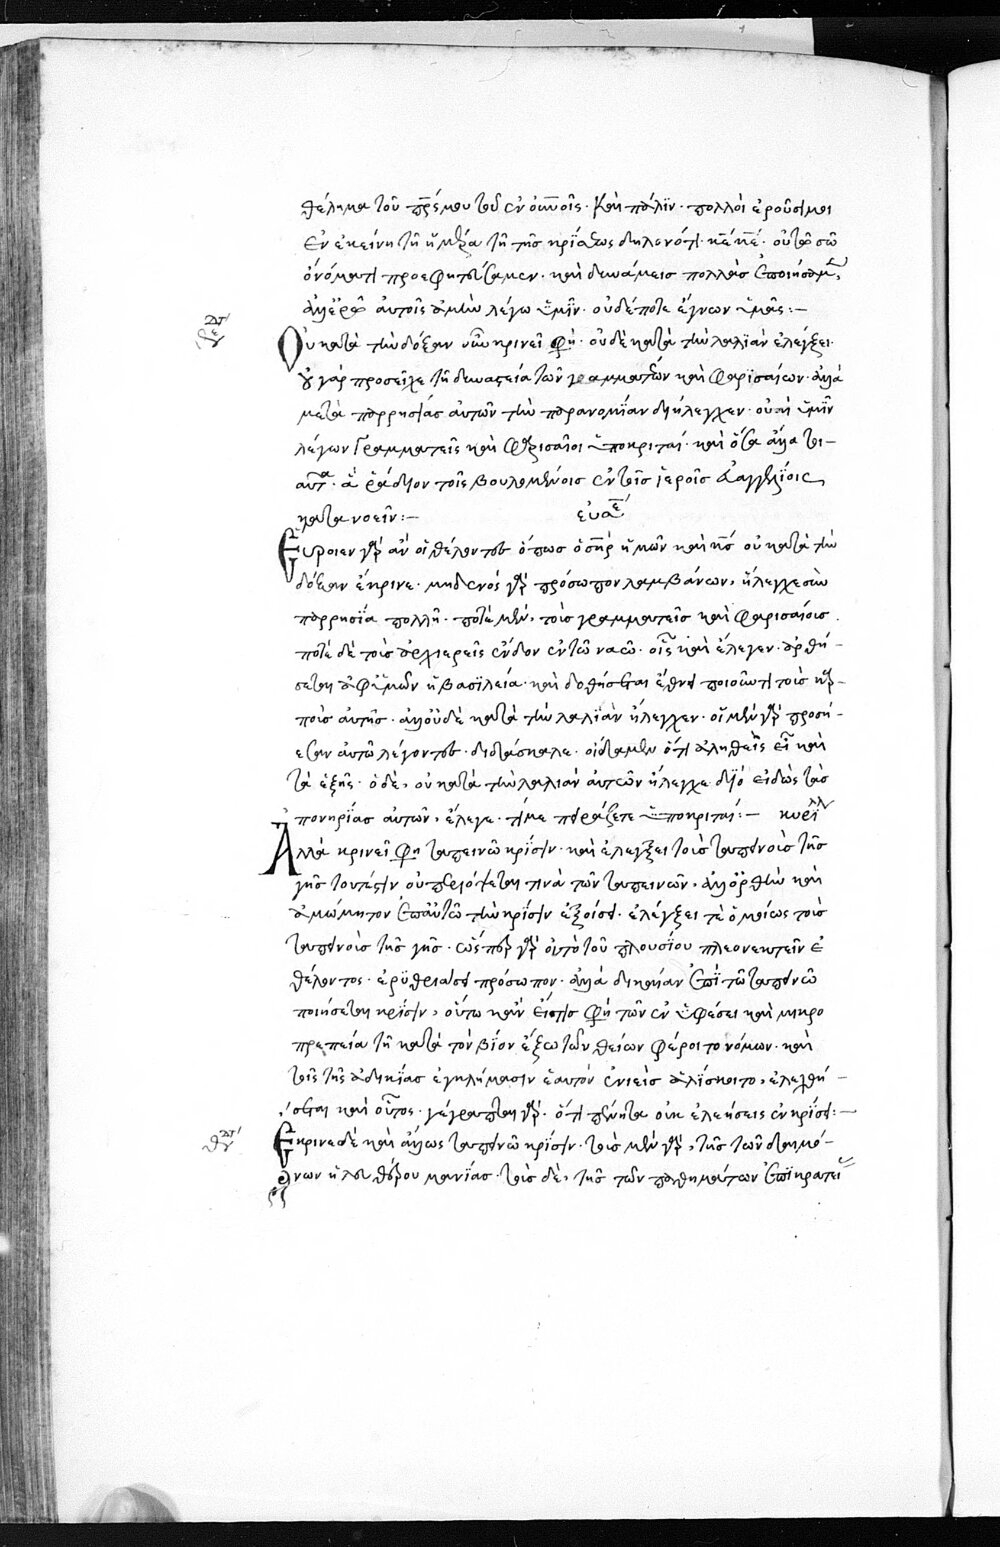 θέλημα τοῦ πρς μου τοῦ ἐν οὐνοῖς· καὶ πάλιν· πολλοὶ ἐροῦσί μοι
ἐν ἐκείνη τῆ ἡμέρα τῆ τῆς κρίσεως δηλονότι· κε κε· οὐ τῶ σῶ
ὀνόματι προεφητεύσαμεν· καὶ δυνάμεις πολλὰς ἐποιήσαμεν,
ἀλλ' ἐρῶ αὐτοῖς ἀμὴν λέγω ὑμῖν· οὐδέποτε ἔγνων ὑμᾶς:—
Οὐ κατὰ τὴν δόξαν οὖν κρινεῖ φη· οὐδὲ κατὰ τὴν λαλιὰν ἐλέγξει·
οὐ γὰρ προσεῖχε τῆ δυναστεία τῶν γραμματέων καὶ φαρισαίων· ἀλλὰ
μετὰ παρρησίας αὐτῶν τὴν παρανομίαν διήλεγχεν· οὐαὶ ὑμῖν
λέγων γραμματεῖς καὶ φαρισαῖοι ὑποκριταί· καὶ ὅσα ἄλλα τοι—
αῦτα· ἃ ῥάδιον τοῖς βουλομένοις ἐν τοῖς ἱεροῖς εὐαγγελίοις
κατανοεῖν:— εὐσε
Εὕροιεν γὰρ ἂν οἱ θέλοντες ὅπως ὁ σηρ ἡμῶν καὶ κς οὐ κατὰ τὴν
δόξαν ἔκρινε· μηδενὸς γὰρ πρόσωπον λαμβάνων, ἤλεγχε σὺν
παρρησία πολλῆ· ποτὲ μὲν, τοὺς γραμματεῖς καὶ φαρισαίους·
ποτὲ δὲ τοὺς ἀρχιερεῖς ἔνδον ἐν τῶ ναῶ· οἷς καὶ ἔλεγεν· ἀρθή—
σεται ἀφ' ὑμῶν ἡ βασιλεία· καὶ δοθήσεται ἔθνει ποιοῦντι τοὺς καρ—
ποὺς αὐτῆς· ἀλλ' οὐδὲ κατὰ τὴν λαλιὰν ἤλεγχεν· οἱ μὲν γὰρ προσή—
εσαν αὐτῶ λέγοντες· διδάσκαλε· οἴδαμεν ὅτι ἀληθὴς εἶ καὶ
τὰ ἑξῆς· ὁ δὲ, οὐ κατὰ τὴν λαλιὰν αὐτῶν ἤλεγχε· διὸ εἰδὼς τὰς
πονηρίας αὐτῶν, ἔλεγε· τί με πειράζετε ὑποκριταί:— κυρίλλ
Ἀλλὰ κρινεῖ φη ταπεινῶ κρίσιν· καὶ ἐλέγξει τοὺς ταπεινοὺς τῆς
γῆς τουτέστιν οὐ περιόψεται τινὰ τῶν ταπεινῶν, ἀλλ' ὀρθὴν καὶ
ἀμώμητον ἐπ' αὐτῶ τὴν κρίσιν ἐξοίσει· ἐλέγξει τὲ ὁμοίως τοὺς
ταπεινοὺς τῆς γῆς· ὥσπερ γὰρ οὐ τὸ τοῦ πλουσίου πλεονεκτεῖν ἐ
θέλοντος· ἐρυθριάσει πρόσωπον· ἀλλὰ δικαίαν ἐπὶ τῶ ταπεινῶ
ποιήσεται κρίσιν, οὕτω κἂν εἴ τις φη τῶν ἐν ὑφέσει καὶ μικρο
πρεπεία τῆ κατὰ τὸν βίον ἔξω τῶν θείων φέροιτο νόμων· καὶ
τοῖς τῆς ἀδικίας ἐγκλήμασιν ἑαυτὸν ἐνιεὶς ἁλίσκοιτο, ἐλεγχθή—
σεται καὶ οὗτος· γέγραπται γὰρ· ὅτι πένητα οὐκ ἐλεήσεις ἐν κρίσει:—
Ἔκρινε δὲ καὶ ἄλλως ταπεινῶ κρίσιν· τοῖς μὲν γὰρ, τῆς τῶν δαιμό—
νων ἠλευθέρου μανίας· τοὺς δὲ, τῆς τῶν παθημάτων ἐπικρατεί